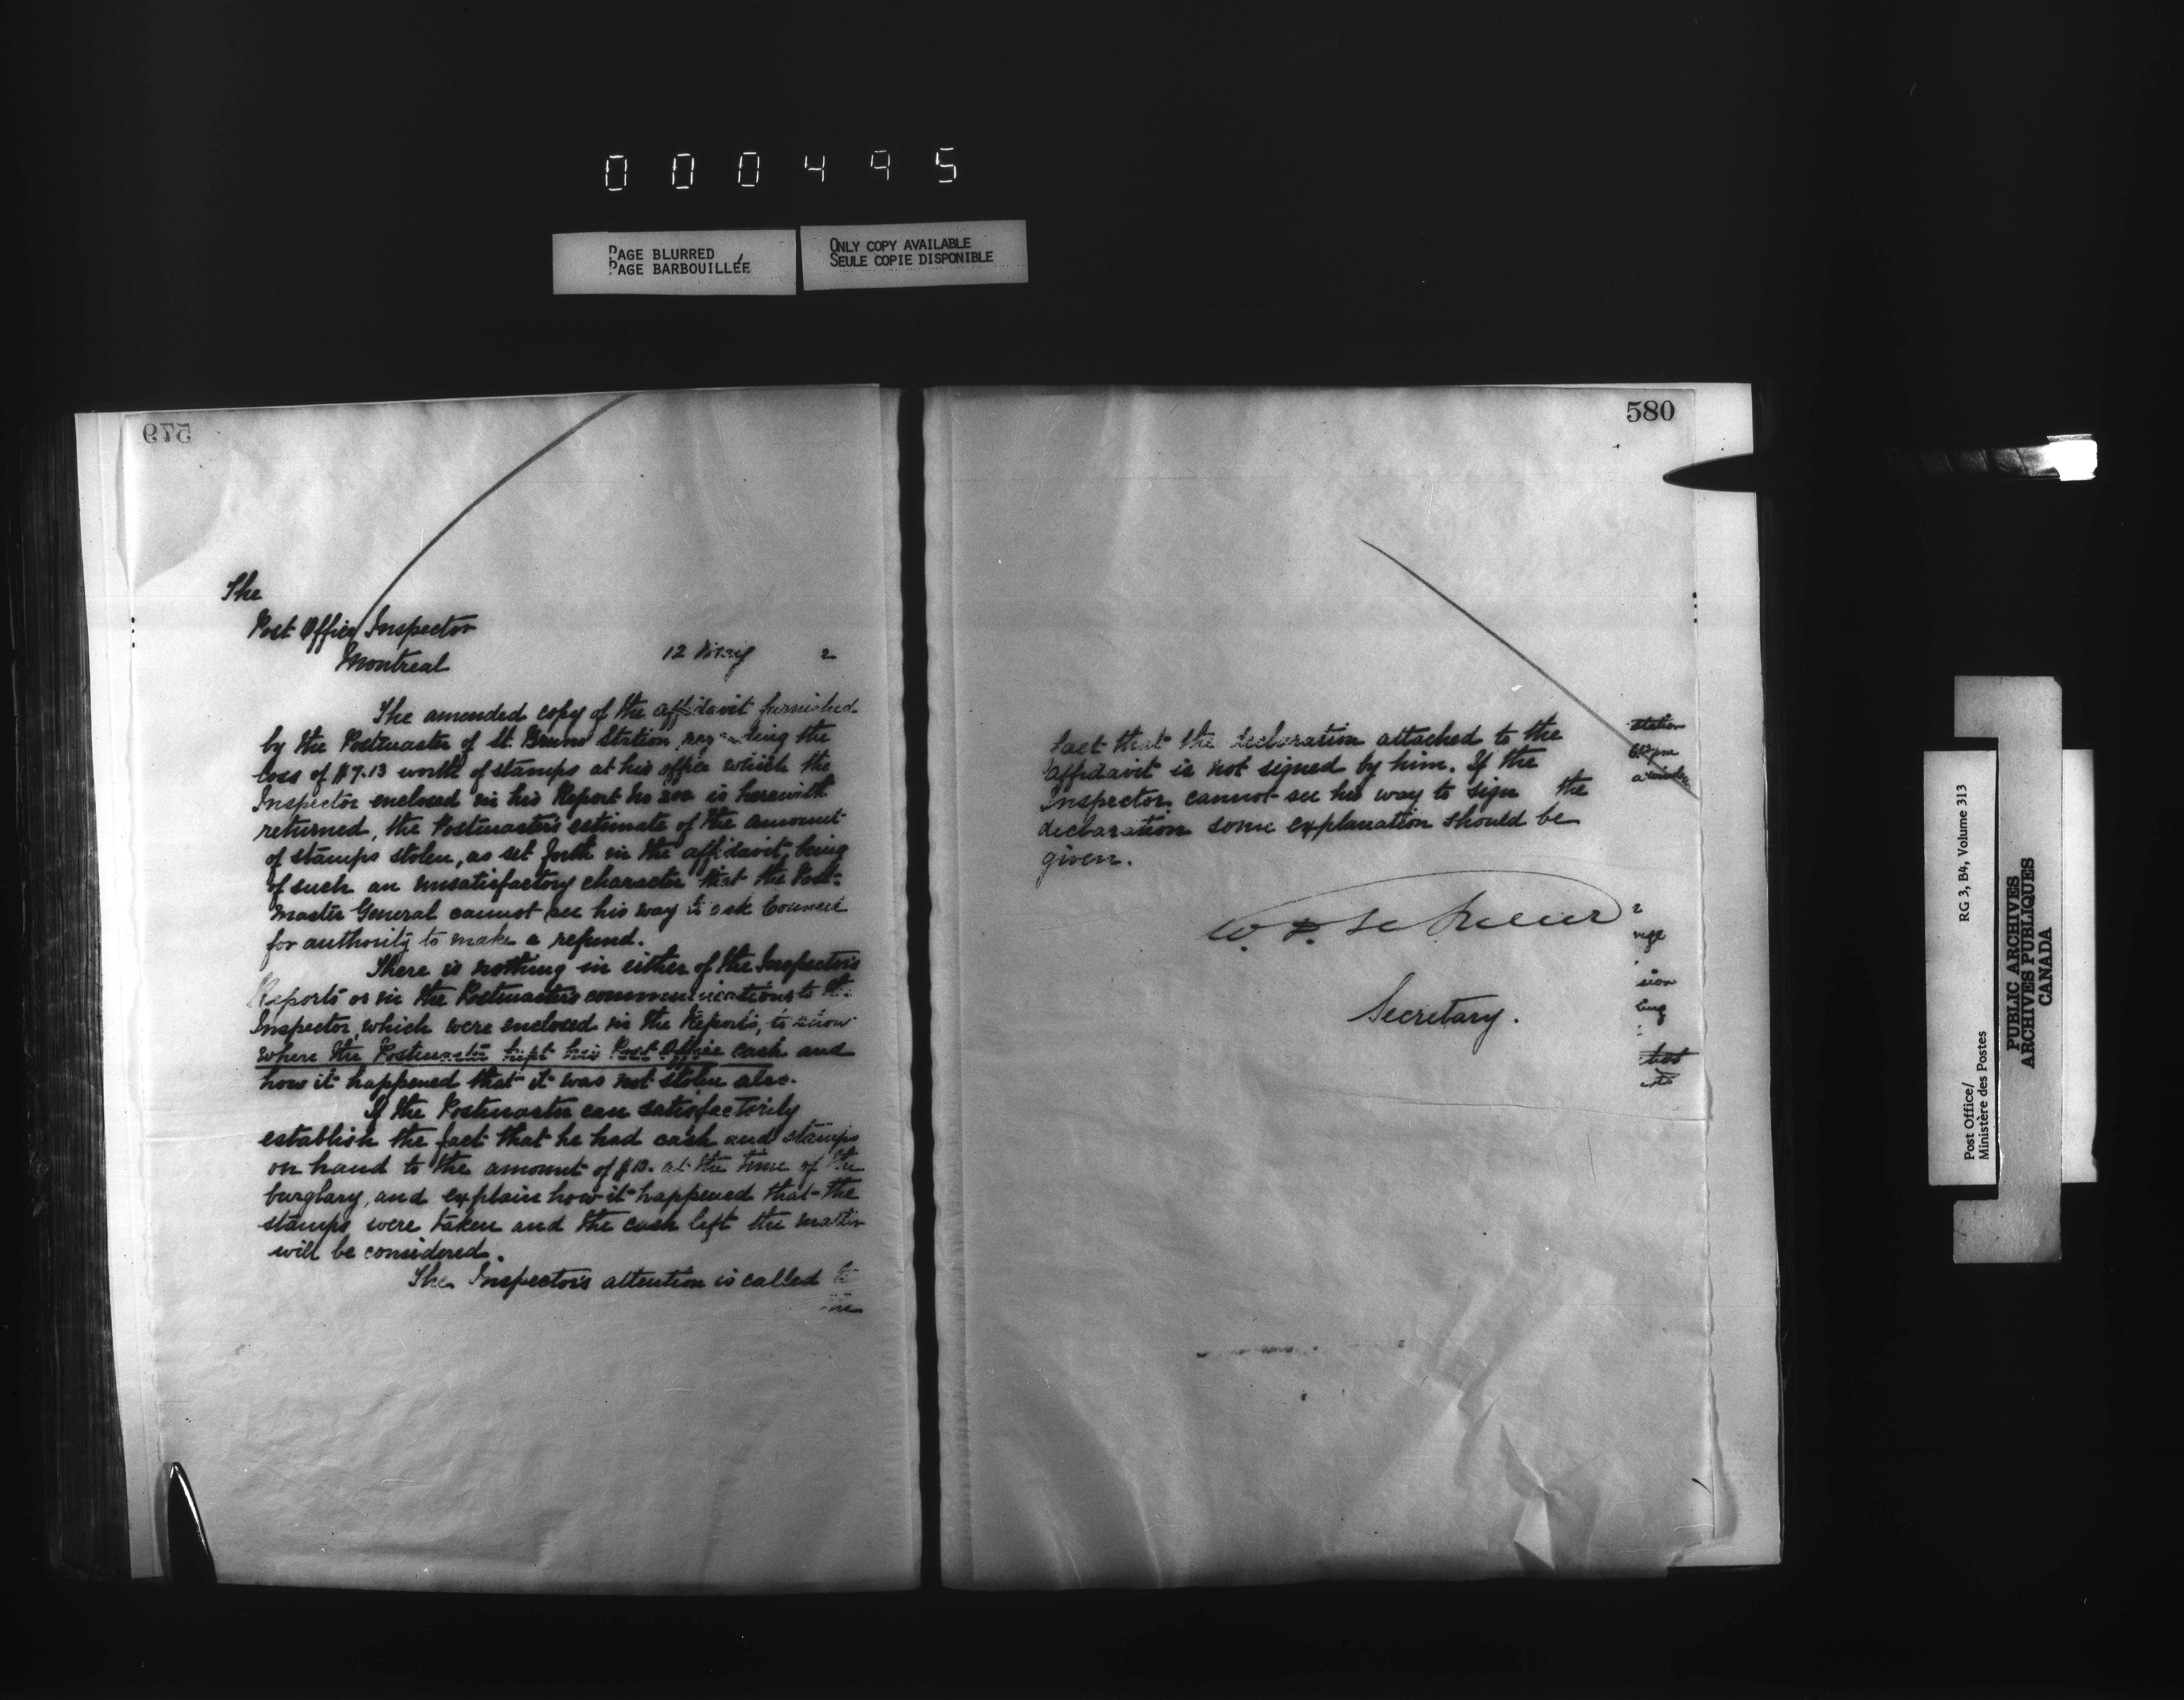 000495
PAGE BLURRED
PAGE BARBOUILLÉE
ONLY COPY AVAILABLE
SEULE COPIE DISPONIBLE
579
The
Post Office Inspector
Montreal
12 May 2
The amended copy of the affidavit furnished
by the Postmaster of St. Bruno Station regarding the
loss of $7.13 worth of stamps at his office which the
Inspector enclosed in his Report No 200 is herewith
returned, the Postmaster's estimate of the amount
of stamps stolen, as set forth in the affidavit, being
of such an unsatisfactory character that the Post-
master General cannot see his way to ask Council
for authority to make a refund.
There is nothing in either of the Inspector's
Reports or in the Postmaster's communications to the
Inspector, which were enclosed in the Reports, to show
where the Postmaster kept his Post Office cash and
how it happened that it was not stolen also.
If the Postmaster can satisfactorily
establish the fact that he had cash and stamps
on hand to the amount of $10. at the time of the
burglary, and explain how it happened that the
stamps were taken and the cash left the matter
will be considered.
The Inspector's attention is called to
the
580
fact that the declaration attached to the
affidavit is not signed by him. If the
Inspector cannot see his way to sign the
declaration some explanation should be
given.
Secretary.
station
RG 3, B4, Volume 313
Post Office/
Ministère des Postes
PUBLIC ARCHIVES
ARCHIVES PUBLIQUES
CANADA